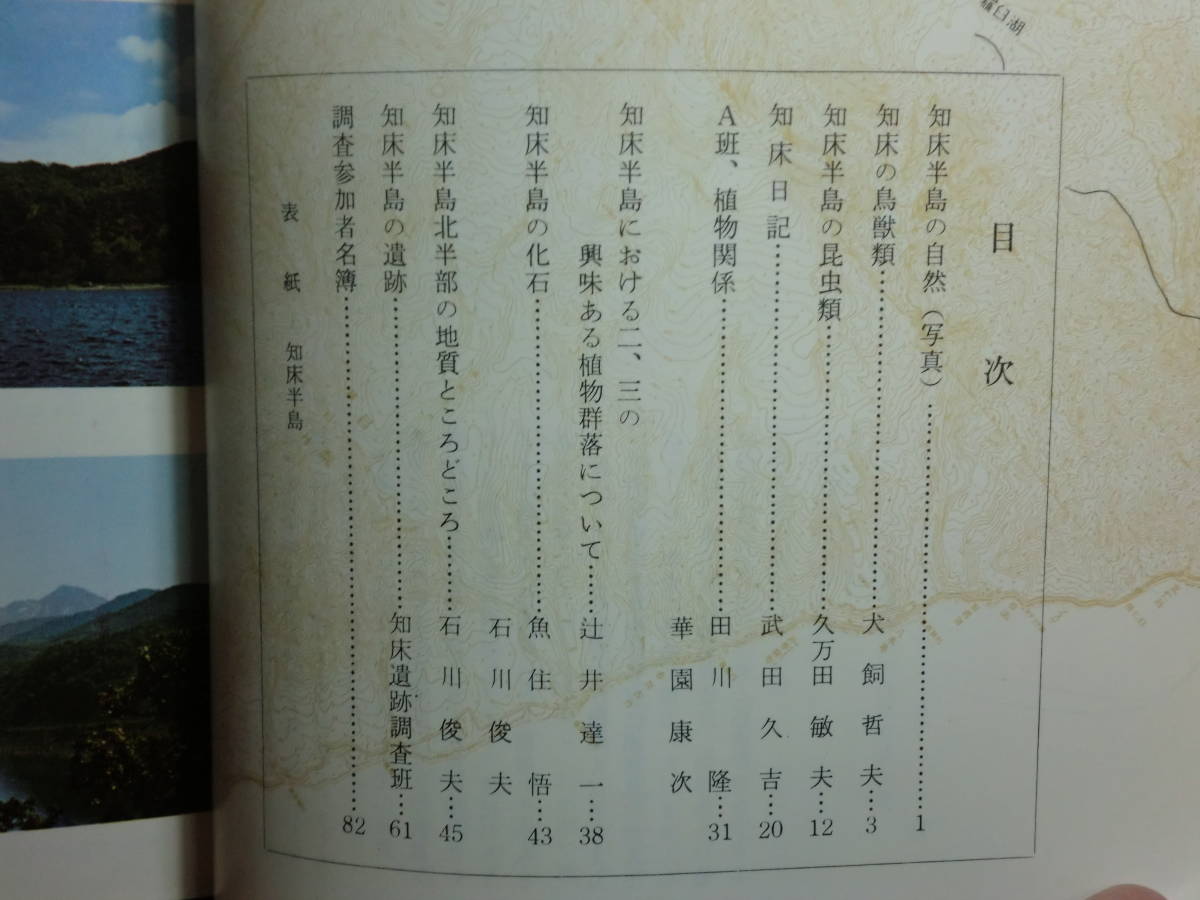 目次
知床半島の自然（写真）……1
知床の鳥獣類……犬飼哲夫…3
知床半島の昆虫類……久万田敏夫…12
知床日記……武田久吉…20
A班、植物関係……田川隆…31
華園康次
知床半島における二、三の
興味ある植物群落について……辻井達一…38
知床半島の化石……魚住悟…43
石川俊夫
知床半島北半部の地質ところどころ……石川俊夫…45
知床半島の遺跡……知床遺跡調査班…61
調査参加者名簿……82
表紙 知床半島